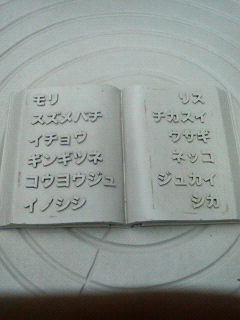 モリ
スズメバチ
イチョウ
ギンギツネ
コウヨウジュ
イノシシ
リス
チカスイ
ウサギ
ネッコ
ジュカイ
シカ